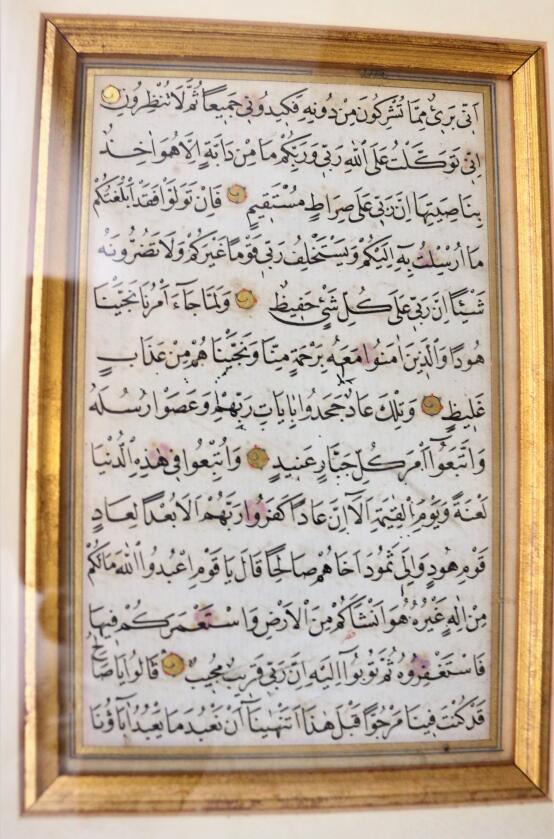 اَنّٖى بَرٖىءٌ مِمَّا تُشْرِكُونَ مِنْ دُونِهٖ فَكٖيدُونٖى جَمٖيعًا ثُمَّ لَا تُنْظِرُونِ
اِنّٖى تَوَكَّلْتُ عَلَى اللّٰهِ رَبّٖى وَرَبِّكُمْ مَا مِنْ دَابَّةٍ اِلَّا هُوَ اٰخِذٌ
بِنَاصِيَتِهَا اِنَّ رَبّٖى عَلٰى صِرَاطٍ مُسْتَقٖيمٍ فَاِنْ تَوَلَّوْا فَقَدْ اَبْلَغْتُكُمْ
مَا اُرْسِلْتُ بِهٖ اِلَيْكُمْ وَيَسْتَخْلِفُ رَبّٖى قَوْمًا غَيْرَكُمْ وَلَا تَضُرُّونَهُ
شَيْئًا اِنَّ رَبّٖى عَلٰى كُلِّ شَىْءٍ حَفٖيظٌ وَلَمَّا جَاءَ اَمْرُنَا نَجَّيْنَا
هُودًا وَالَّذٖينَ اٰمَنُوا مَعَهُ بِرَحْمَةٍ مِنَّا وَنَجَّيْنَاهُمْ مِنْ عَذَابٍ
غَلٖيظٍ وَتِلْكَ عَادٌ جَحَدُوا بِاٰيَاتِ رَبِّهِمْ وَعَصَوْا رُسُلَهُ
وَاتَّبَعُوا اَمْرَ كُلِّ جَبَّارٍ عَنٖيدٍ وَاُتْبِعُوا فٖى هٰذِهِ الدُّنْيَا
لَعْنَةً وَيَوْمَ الْقِيٰمَةِ اَلَا اِنَّ عَادًا كَفَرُوا رَبَّهُمْ اَلَا بُعْدًا لِعَادٍ
قَوْمِ هُودٍ وَاِلٰى ثَمُودَ اَخَاهُمْ صَالِحًا قَالَ يَا قَوْمِ اعْبُدُوا اللّٰهَ مَا لَكُمْ
مِنْ اِلٰهٍ غَيْرُهُ هُوَ اَنْشَاَكُمْ مِنَ الْاَرْضِ وَاسْتَعْمَرَكُمْ فٖيهَا
فَاسْتَغْفِرُوهُ ثُمَّ تُوبُوا اِلَيْهِ اِنَّ رَبّٖى قَرٖيبٌ مُجٖيبٌ قَالُوا يَا صَالِحُ
قَدْ كُنْتَ فٖينَا مَرْجُوًّا قَبْلَ هٰذَا اَتَنْهٰينَا اَنْ نَعْبُدَ مَا يَعْبُدُ اٰبَاؤُنَا